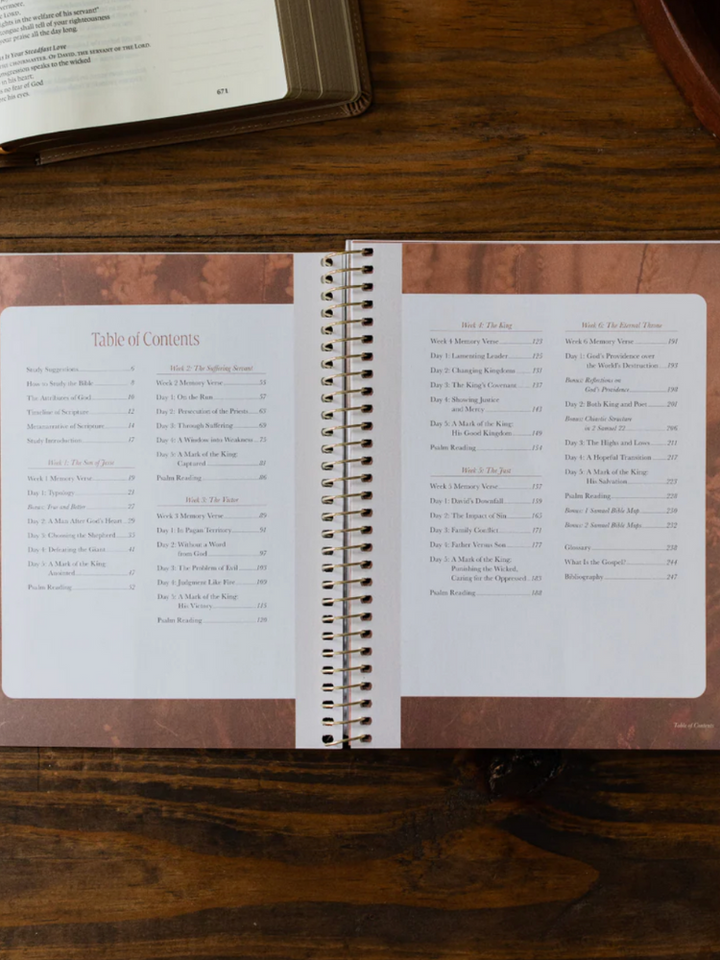 ghts in the welfare of his servant!"
ongue shall tell of your righteousness
your praise all the day long.
t Is Your Steadfast Love
OF DAVID, THE SERVANT OF THE LORD.
ongression speaks to the wicked
in his heart;
s no fear of God
re his eyes.
671
Table of Contents
Study Suggestions 6
How to Study the Bible 8
The Attributes of God 10
Timeline of Scripture 12
Metanarrative of Scripture 14
Study Introduction 17
Week 1: The Son of Jesse
Week 1 Memory Verse 19
Day 1: Typology 21
Bonus: True and Better 27
Day 2: A Man After God's Heart 29
Day 3: Choosing the Shepherd 35
Day 4: Defeating the Giant 41
Day 5: A Mark of the King:
Anointed 47
Psalm Reading 52
Week 2: The Suffering Servant
Week 2 Memory Verse 55
Day 1: On the Run 57
Day 2: Persecution of the Priests 63
Day 3: Through Suffering 69
Day 4: A Window into Weakness 75
Day 5: A Mark of the King:
Captured 81
Psalm Reading 86
Week 3: The Victor
Week 3 Memory Verse 89
Day 1: In Pagan Territory 91
Day 2: Without a Word
from God 97
Day 3: The Problem of Evil 103
Day 4: Judgment Like Fire 109
Day 5: A Mark of the King:
His Victory 115
Psalm Reading 120
Week 4: The King
Week 4 Memory Verse 123
Day 1: Lamenting Leader 125
Day 2: Changing Kingdoms 131
Day 3: The King's Covenant 137
Day 4: Showing Justice
and Mercy 141
Day 5: A Mark of the King:
His Good Kingdom 149
Psalm Reading 154
Week 5: The Just
Week 5 Memory Verse 157
Day 1: David's Downfall 159
Day 2: The Impact of Sin 165
Day 3: Family Conflict 171
Day 4: Father Versus Son 177
Day 5: A Mark of the King:
Punishing the Wicked,
Caring for the Oppressed 183
Psalm Reading 188
Week 6: The Eternal Throne
Week 6 Memory Verse 191
Day 1: God's Providence over
the World's Destruction 193
Bonus: Reflections on
God's Providence 198
Day 2: Both King and Poet 201
Bonus: Chiastic Structure
in 2 Samuel 22 206
Day 3: The Highs and Lows 211
Day 4: A Hopeful Transition 217
Day 5: A Mark of the King:
His Salvation 223
Psalm Reading 228
Bonus: 1 Samuel Bible Map 230
Bonus: 2 Samuel Bible Maps 232
Glossary 238
What Is the Gospel? 244
Bibliography 247
Table of Contents